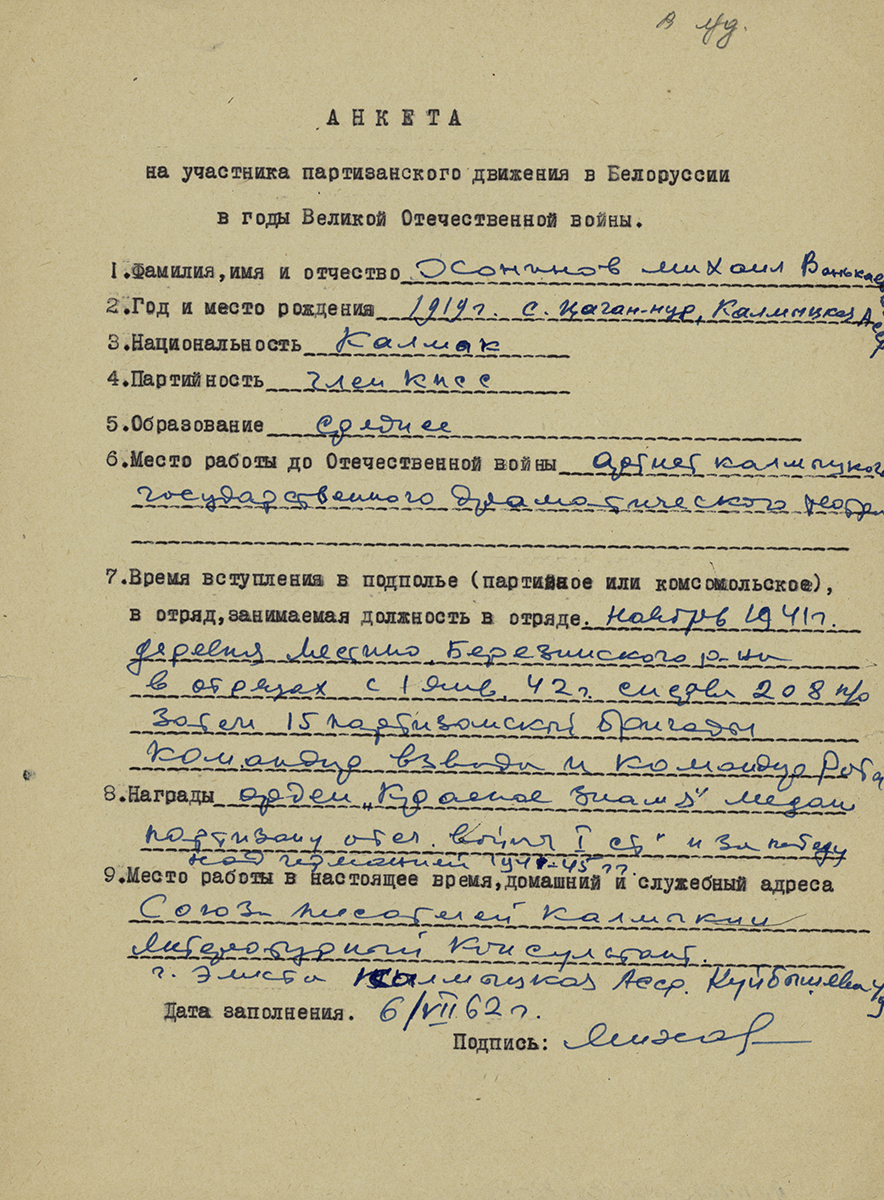 в
АНКЕТА
на участника партизанского движения в Белоруссии
в годы Великой Отечественной войны.
1.Фамилия,имя и отчество Осонинов Михаил Ванькаев
2.Год и место рождения 1919 г. с. Цаган-нур, Калмыцкая
3.Национальность Калмак
4.Партийность член КПСС
5.Образование среднее
6.Место работы до Отечественной войны артист калмыцкого
государственного драматического театра
7.Время вступления в подполье (партийное или комсомольское),
в отряд,занимаемая должность в отряде. ноябрь 1941 г.
деревня Березинского р-на
в отрядах с 1 янв. 42 г. 208 п/о
Затем 15 партизанской бригады
командир взвода и командир рота
8.Награды орден „Красное Знамя" медаль
партизану отеч. войны I ст" и За победу
над германией 1941-45 гг
9.Место работы в настоящее время,домашний и служебный адреса
Союз писателей Калмыкии
Литературный консултант.
г. Элиста Калмыцкая Асср. Куйбышева
Дата заполнения. 6/VII 62 г.
Подпись: